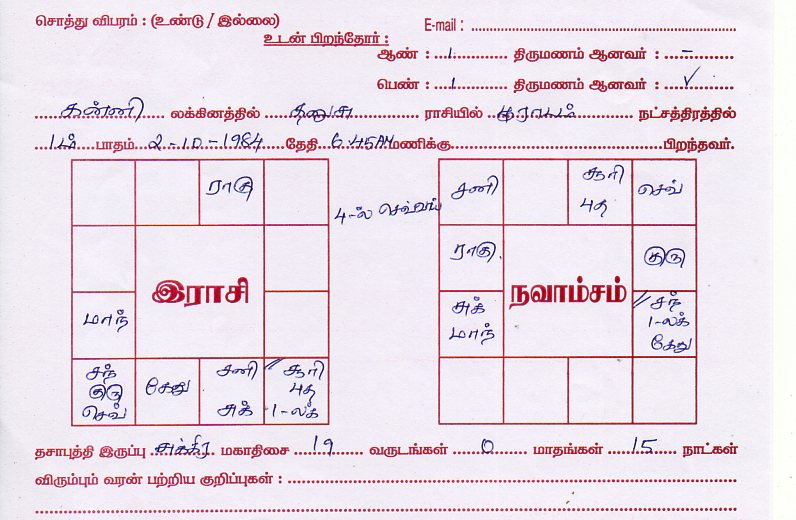 சொத்து விபரம் : (உண்டு / இல்லை) E-mail :
உடன் பிறந்தோர் :
ஆண் : 1 திருமணம் ஆனவர் : -
பெண் : 1 திருமணம் ஆனவர் : ✓
கன்னி லக்கினத்தில் தனுசு ராசியில் பூராடம் நட்சத்திரத்தில்
1ம் பாதம் 2-10-1984 தேதி 6.45AM மணிக்கு பிறந்தவர்.
ராகு
4-ல் செவ்வாய்
சனி சூரி செவ்
புத
ராகு குரு
இராசி
நவாம்சம்
மாந்
சுக் சந்
மாந் 1-லக்
கேது
சந் கேது சனி சூரி
குரு புத
செவ் சுக் 1-லக்
தசாபுத்தி இருப்பு சுக்கிர மகாதிசை 19 வருடங்கள் 0 மாதங்கள் 15 நாட்கள்
விரும்பும் வரன் பற்றிய குறிப்புகள் :